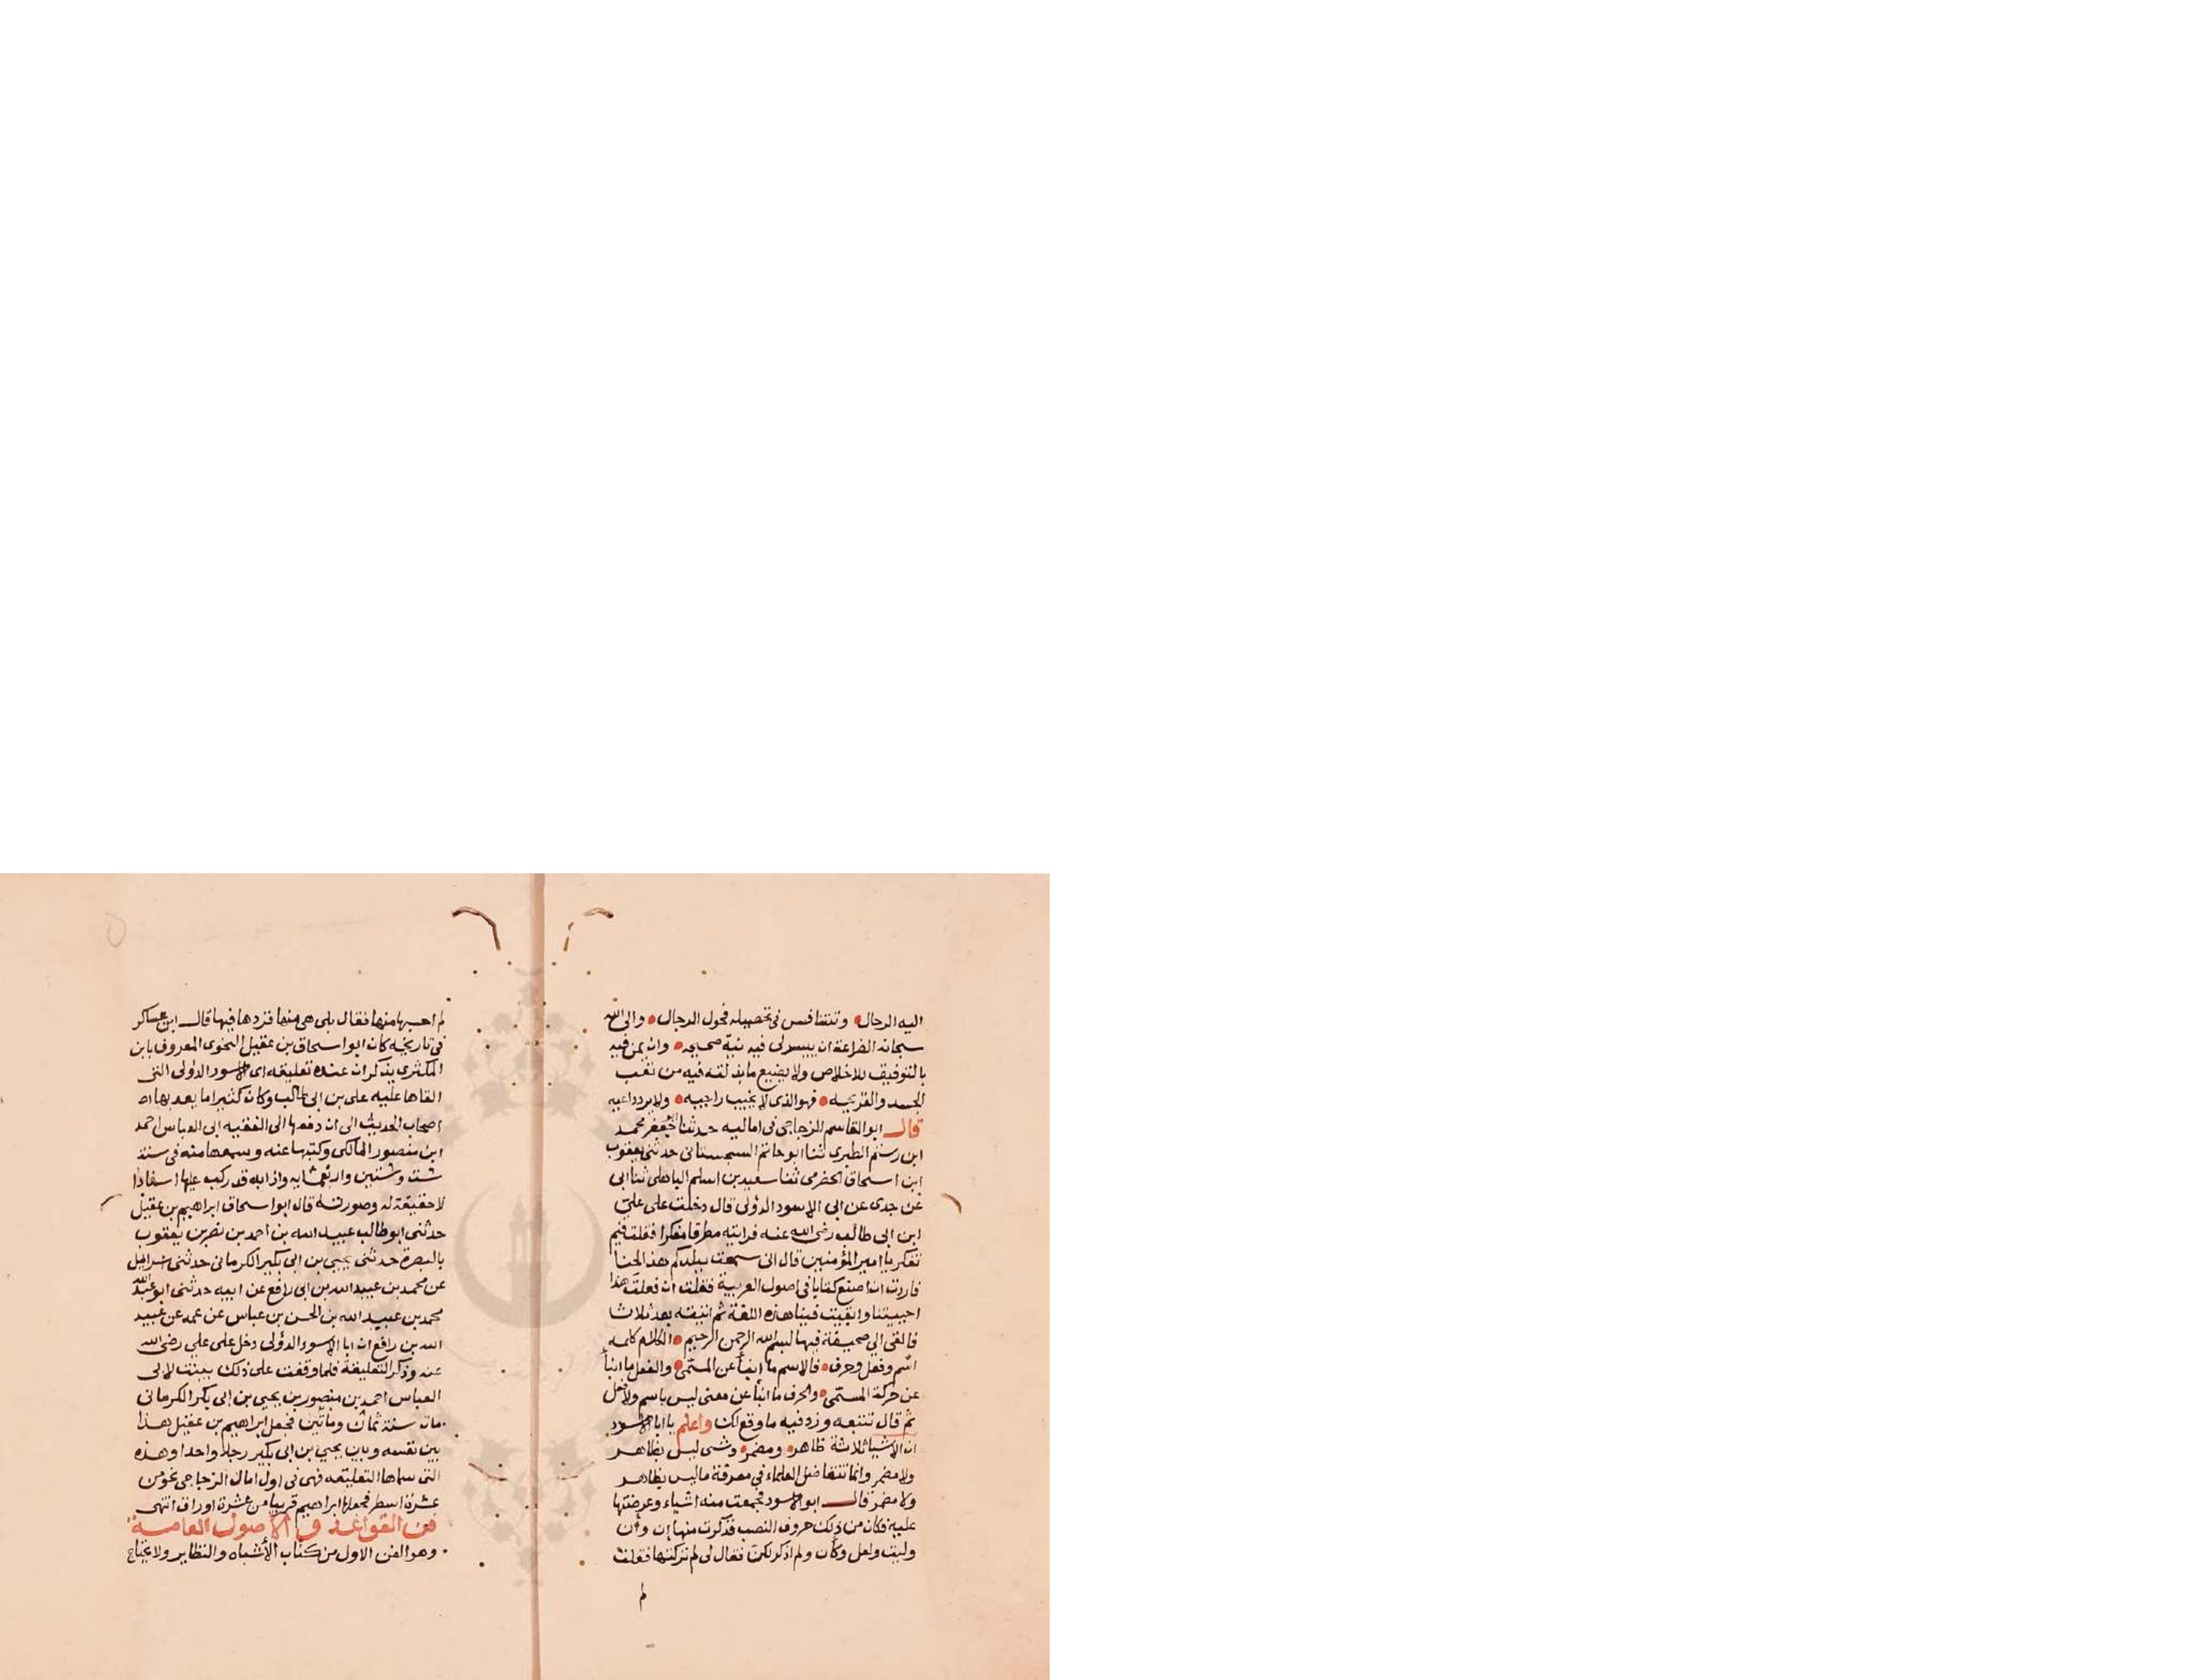 اليه الرحال وتتنافس فى تحصيله فحول الرجال والى الله
سبحانه الضراعة ان ييسر لى فيه نية صحيحه وان يمن فيه
بالتوفيق للاخلاص ولا يضيع ما بذلته فيه من تعب
الجسد والقريحه فهو الذى لا يخيب راجيه ولا يرد داعيه
قال ابو القاسم الزجاجى فى اماليه حدثنا ابو جعفر محمد
ابن رستم الطبرى ثنا ابو حاتم السجستانى حدثنى يعقوب
ابن اسحاق الحضرمى ثنا سعيد بن اسلم الباهلى ثنا ابى
عن جدى عن ابى الاسود الدؤلى قال دخلت على على
ابن ابى طالب رضى الله عنه فرايته مطرقا مفكرا فقلت فيم
تفكر يا امير المؤمنين قال انى سمعت ببلدكم هذا لحنا
فاردت ان اصنع كتابا فى اصول العربية فقلت ان فعلت هذا
احييتنا وابقيت فينا هذه اللغة ثم اتيته بعد ثلاث
فالقى الي صحيفة فيها بسم الله الرحمن الرحيم الكلام كله
اسم وفعل وحرف فالاسم ما انبأ عن المسمى والفعل ما انبأ
عن حركة المسمى والحرف ما انبأ عن معنى ليس باسم ولا فعل
ثم قال تتبعه وزد فيه ما وقع لك واعلم يا ابا الاسود
ان الاشيا ثلاثة ظاهر ومضمر وشى ليس بظاهر
ولا مضمر وانما تتفاضل العلماء فى معرفة ما ليس بظاهر
ولا مضمر قال ابو الاسود فجمعت منه اشياء وعرضتها
عليه فكان من ذلك حروف النصب فذكرت منها إن وأن
وليت ولعل وكأن ولم اذكر لكن فقال لى لم تركتها فقلت
لم
لم احسبها منها فقال بلى هى منها فزدها فيها قال ابن عساكر
فى تاريخه كان ابو اسحاق بن عقيل النحوى المعروف بابن
المكبرى يذكر ان عنده تعليقه ابى الاسود الدؤلى التى
القاها عليه على بن ابى طالب وكان كثيرا ما يعد بها
اصحاب الحديث الى ان دفعها الى الفقيه ابى العباس احمد
ابن منصور المالكى وكتبها عنه وسمعها منه فى سنة
ست وستين واربعمايه واذا به قد ركب عليها اسنادا
لا حقيقة له وصورته قال ابو اسحاق ابراهيم بن عقيل
حدثنى ابو طالب عبيد الله بن احمد بن نصر بن يعقوب
بالبصرة حدثنى يحيى بن ابى بكير الكرمانى حدثنى اسرائيل
عن محمد بن عبيد الله بن ابى رافع عن ابيه حدثنى ابو عبد الله
محمد بن عبيد الله بن الحسن بن عباس عن عمه عن عبيد
الله بن رافع ان ابا الاسود الدؤلى دخل على علي رضى الله
عنه وذكر التعليقة فلما وقفت على ذلك بينت لابى
العباس احمد بن منصور بن يحيى بن ابى بكر الكرمانى
مات سنة ثمان ومأتين فجعل ابراهيم بن عقيل هذا
بين نفسه وبين يحيى بن ابى بكير رجلا واحدا وهذه
التى سماها التعليقه فهى فى اول امالى الزجاجى نحو من
عشرة اسطر فجعلها ابراهيم قريبا من عشرة اوراق انتهى
فن القواعد والاصول العامة
وهو الفن الاول من كتاب الأشباه والنظاير ولا يحتاج